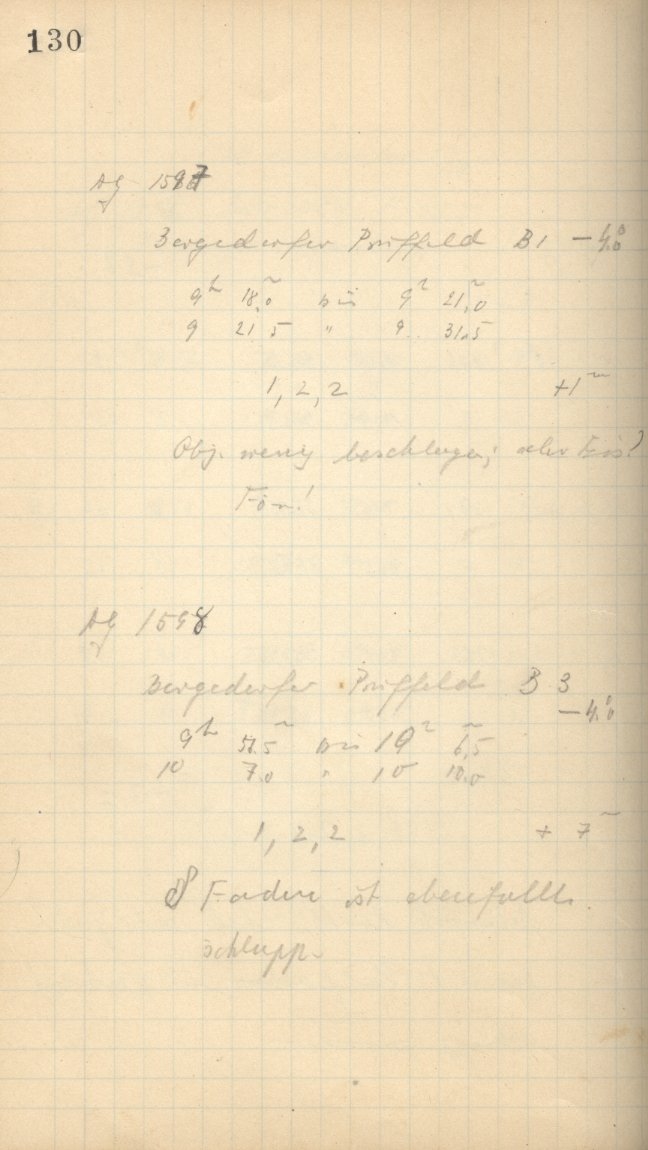 130
AG 1597
Bergedorfer Prüffeld B1 -4.°0
9h 18.0m bis 9h 21.0m
9 21.5 " 9 31.5
1, 2, 2 +1m
Obj. wenig beschlagen; aber
Fön!
AG 1598
Bergedorfer Prüffeld B 3
-4.°0
9h bis 10h 6.5m
10 7.0 " 10
1, 2, 2 + 7m
δ Faden ist ebenfalls
schlapp.